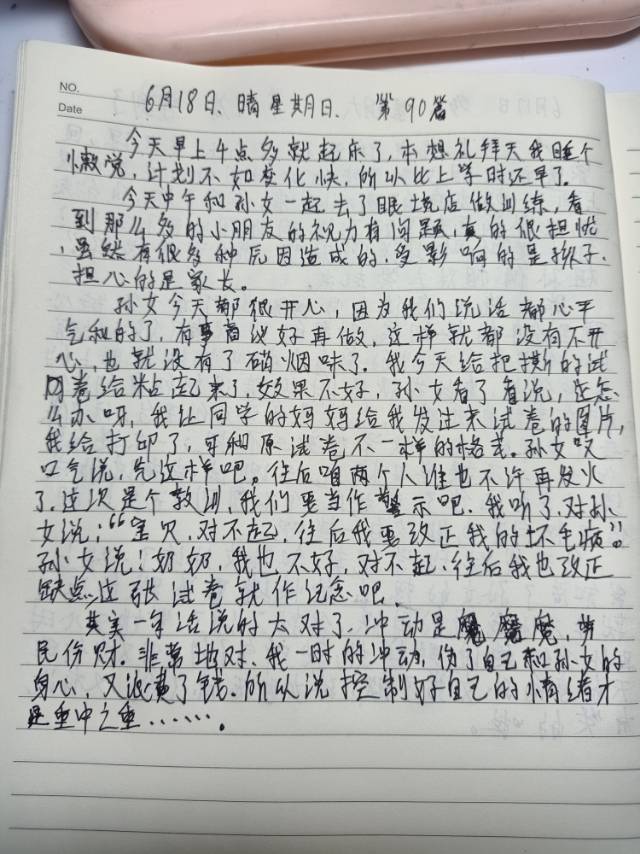 NO.
Date
6月18日、晴星期日、 第90篇
今天早上4点多就起来了,本想礼拜天我睡个
懒觉,计划不如变化快,所以比上学时还早了。
今天中午和孙女一起去了眼镜店做训练,看
到那么多的小朋友的视力有问题,真的很担忧
,虽然有很多种原因造成的,受影响的是孩子,
担心的是家长。
孙女今天都很开心,因为我们说话都心平
气和的了,有事商议好再做,这样就都没有不开
心,也就没有了硝烟味了。我今天给把撕的试
卷给粘起来了,效果不好,孙女看了看说,这怎
么办呀,我让同学的妈妈给我发过来试卷的图片,
我给打印了,可和原试卷不一样的格式。孙女叹
口气说,先这样吧。往后咱两个人谁也不许再发火
了,这次是个教训,我们要当作警示吧,我听了,对孙
女说:“宝贝,对不起,往后我要改正我的坏毛病”。
孙女说:奶奶,我也不好,对不起,往后我也改正
缺点,这张试卷就作纪念吧。
其实一年话说的太对了,冲动是魔魔魔,劳
民伤财。非常地对、我一时的冲动,伤了自己和孙女的
身心,又浪费了钱。所以说控制好自己的情绪才
是重中之重……。